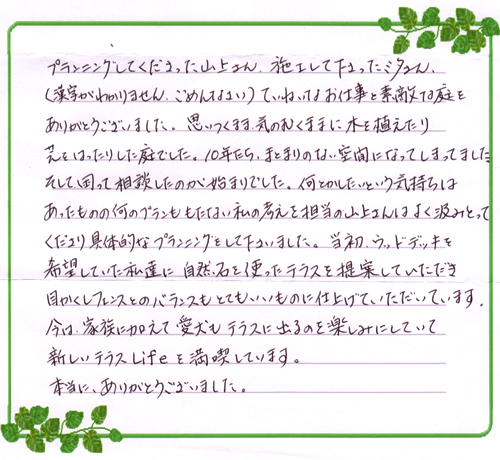 プランニングしてくださった山上さん、施工して下さったミタさん、
(漢字がわかりません、ごめんなさい)ていねいなお仕事と素敵な庭を
ありがとうございました。思いつくまま、気のむくままに木を植えたり
芝をはったりした庭でした。10年たち、まとまりのない空間になってしまってました
そして困って相談したのが始まりでした。何とかしたいという気持ちは
あったものの何のプランももたない私の考えを担当の山上さんはよく汲みとって
くださり具体的なプランニングをして下さいました。当初、ウッドデッキを
希望していた私達に自然石を使ったテラスを提案していただき
目かくしフェンスとのバランスもとてもいいものに仕上げていただいています。
今は、家族に加えて愛犬もテラスに出るのを楽しみにしていて
新しいテラスLifeを満喫しています。
本当に、ありがとうございました。